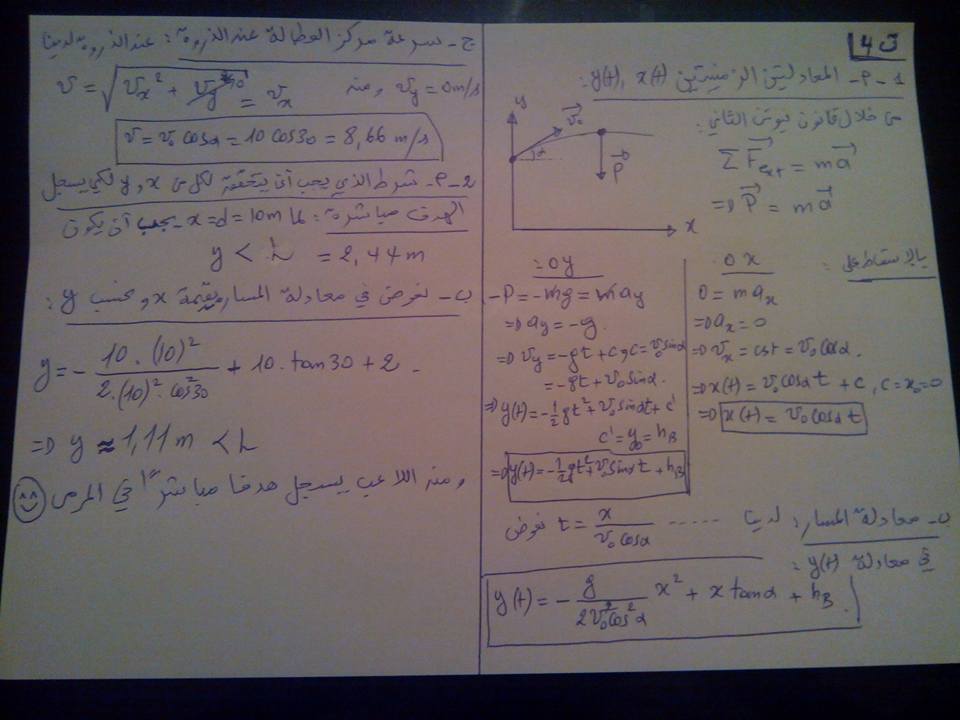 ت 4
1-أ- المعادلتين الزمنيتين x(t), y(t):
من خلال قانون نيوتن الثاني:
ΣF⃗ext = ma⃗
=> P⃗ = ma⃗
y
v⃗₀
α
P⃗
x
بالإسقاط على:
0x
0 = maₓ
=> aₓ = 0
=> vₓ = cst = v₀cosα.
=> x(t) = v₀cosα t + c, c = x₀ = 0
=> x(t) = v₀cosα t
0y:
-P = -mg = may
=> ay = -g.
=> vy = -gt + c, c = v₀sinα
= -gt + v₀sinα.
=> y(t) = -1/2 gt² + v₀sinαt + c'
c' = y₀ = hB
=> y(t) = -1/2 gt² + v₀sinα t + hB
ب- معادلة المسار: لدينا ..... t = x / v₀cosα نعوض
في معادلة y(t):
y(t) = - g / 2v₀²cos²α x² + x tanα + hB.
ج- سرعة مركز العطالة عند الذروة: عند الذروة لدينا
vy = 0m/s ومنه v = √(vₓ² + vy²) = vₓ
0
v = v₀cosα = 10 cos30 = 8,66 m/s
2-أ- شرط الذي يجب أن يتحققه لكل من x و y لكي يسجل
الهدف مباشرة: لما x = d = 10m يجب أن يكون
y < L = 2,44m
ب- نعوض في معادلة المسار بقيمة x ونحسب y:
y = - 10.(10)² / 2.(10)².cos²30 + 10.tan30 + 2.
=> y ≈ 1,11m < L
ومنه اللاعب يسجل هدفا مباشرًا في المرمى